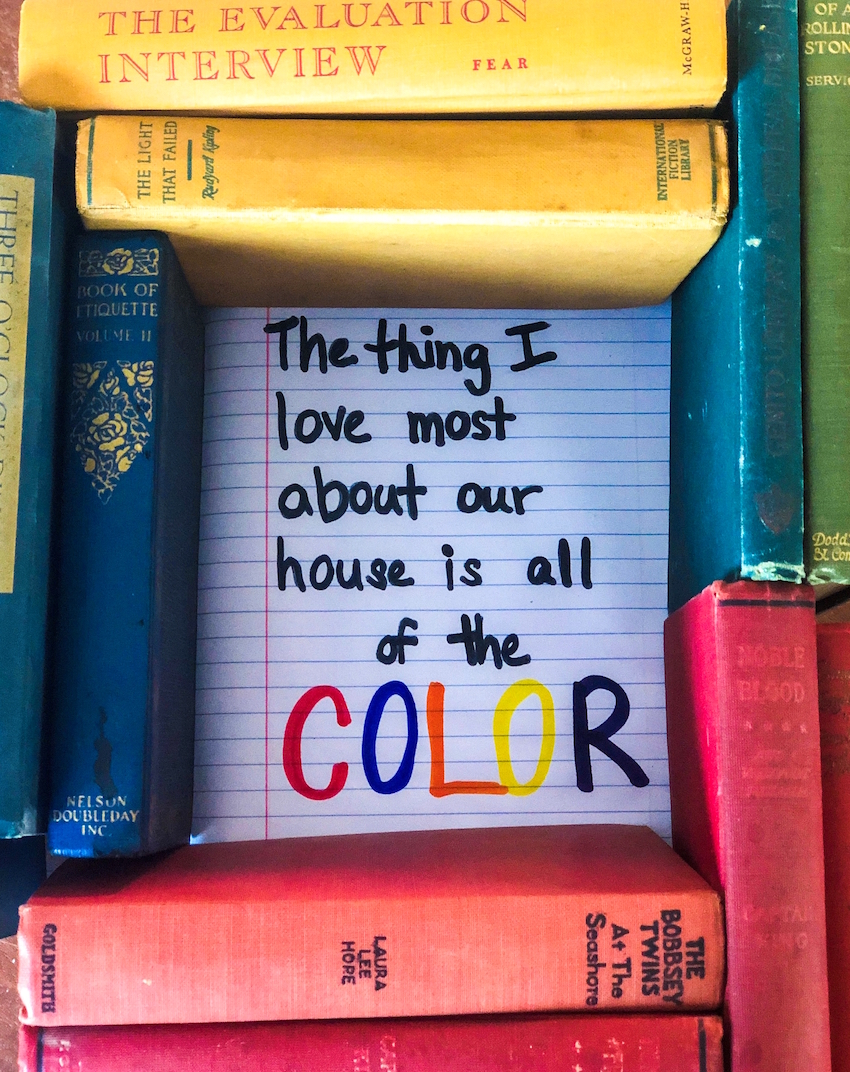 THE EVALUATION
INTERVIEW
FEAR
McGRAW-H
OF A
ROLLIN
STON
SERVIC
THE LIGHT
THAT FAILED
Rudyard Kipling
INTERNATIONAL
FICTION
LIBRARY
BOOK OF
ETIQUETTE
VOLUME II
NELSON
DOUBLEDAY
INC
The thing I
love most
about our
house is all
of the
COLOR
Dodd,
& Com
NOBLE
BLOOD
CAPTAIN
KING
THE
BOBBSEY
TWINS
At The
Seashore
LAURA
LEE
HOPE
GOLDSMITH